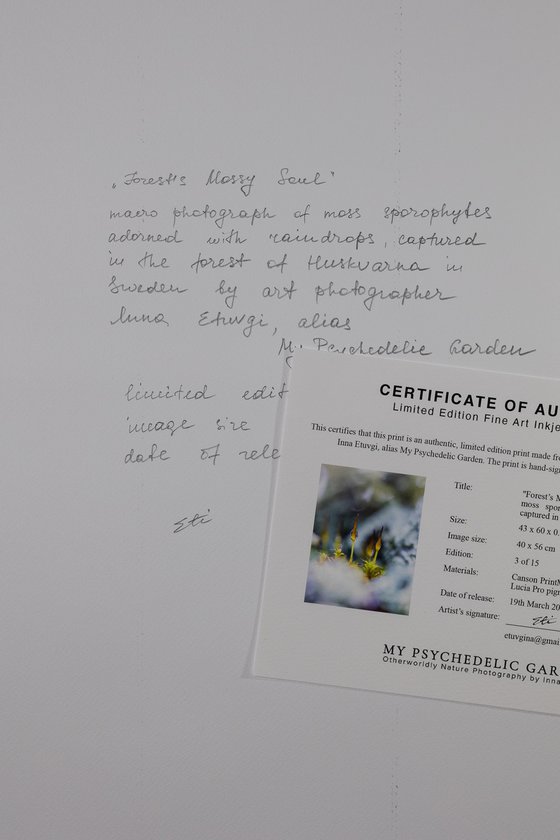 „Forest's Mossy Soul"
macro photograph of moss sporophytes
adorned with raindrops, captured
in the forest of Huskvarna in
Sweden by art photographer
Inna Etuvgi, alias
My Psychedelic Garden
limited edit
image size
date of rele
Eti
CERTIFICATE OF AU
Limited Edition Fine Art Inkje
This certifies that this print is an authentic, limited edition print made fro
Inna Etuvgi, alias My Psychedelic Garden. The print is hand-sig
Title: "Forest's M
moss spor
captured in
Size: 43 x 60 x 0.
Image size: 40 x 56 cm
Edition: 3 of 15
Materials: Canson PrintM
Lucia Pro pig
Date of release: 19th March 20
Artist's signature: Eti
etuvgina@gmai
MY PSYCHEDELIC GAR
Otherworldly Nature Photography by Inna